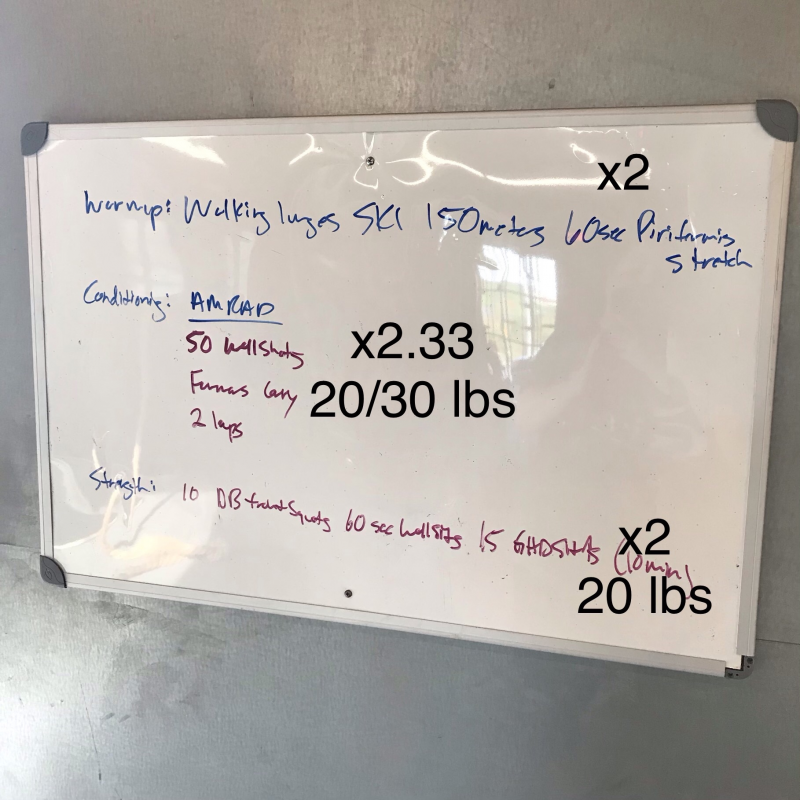 x2
Warmup: Walking lunges SKI 150meters 60sec Piriformis
stretch
Conditioning: AMRAP
50 Wallshots x2.33
Farmers Carry 20/30 lbs
2 laps
Strength: 10 DB front Squats 60 sec wallsits 15 GHD Situps (10 min)
x2
20 lbs